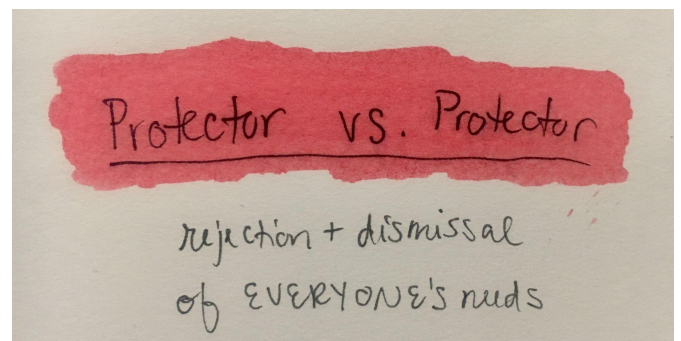 Protector vs. Protector
rejection + dismissal
of EVERYONE's needs